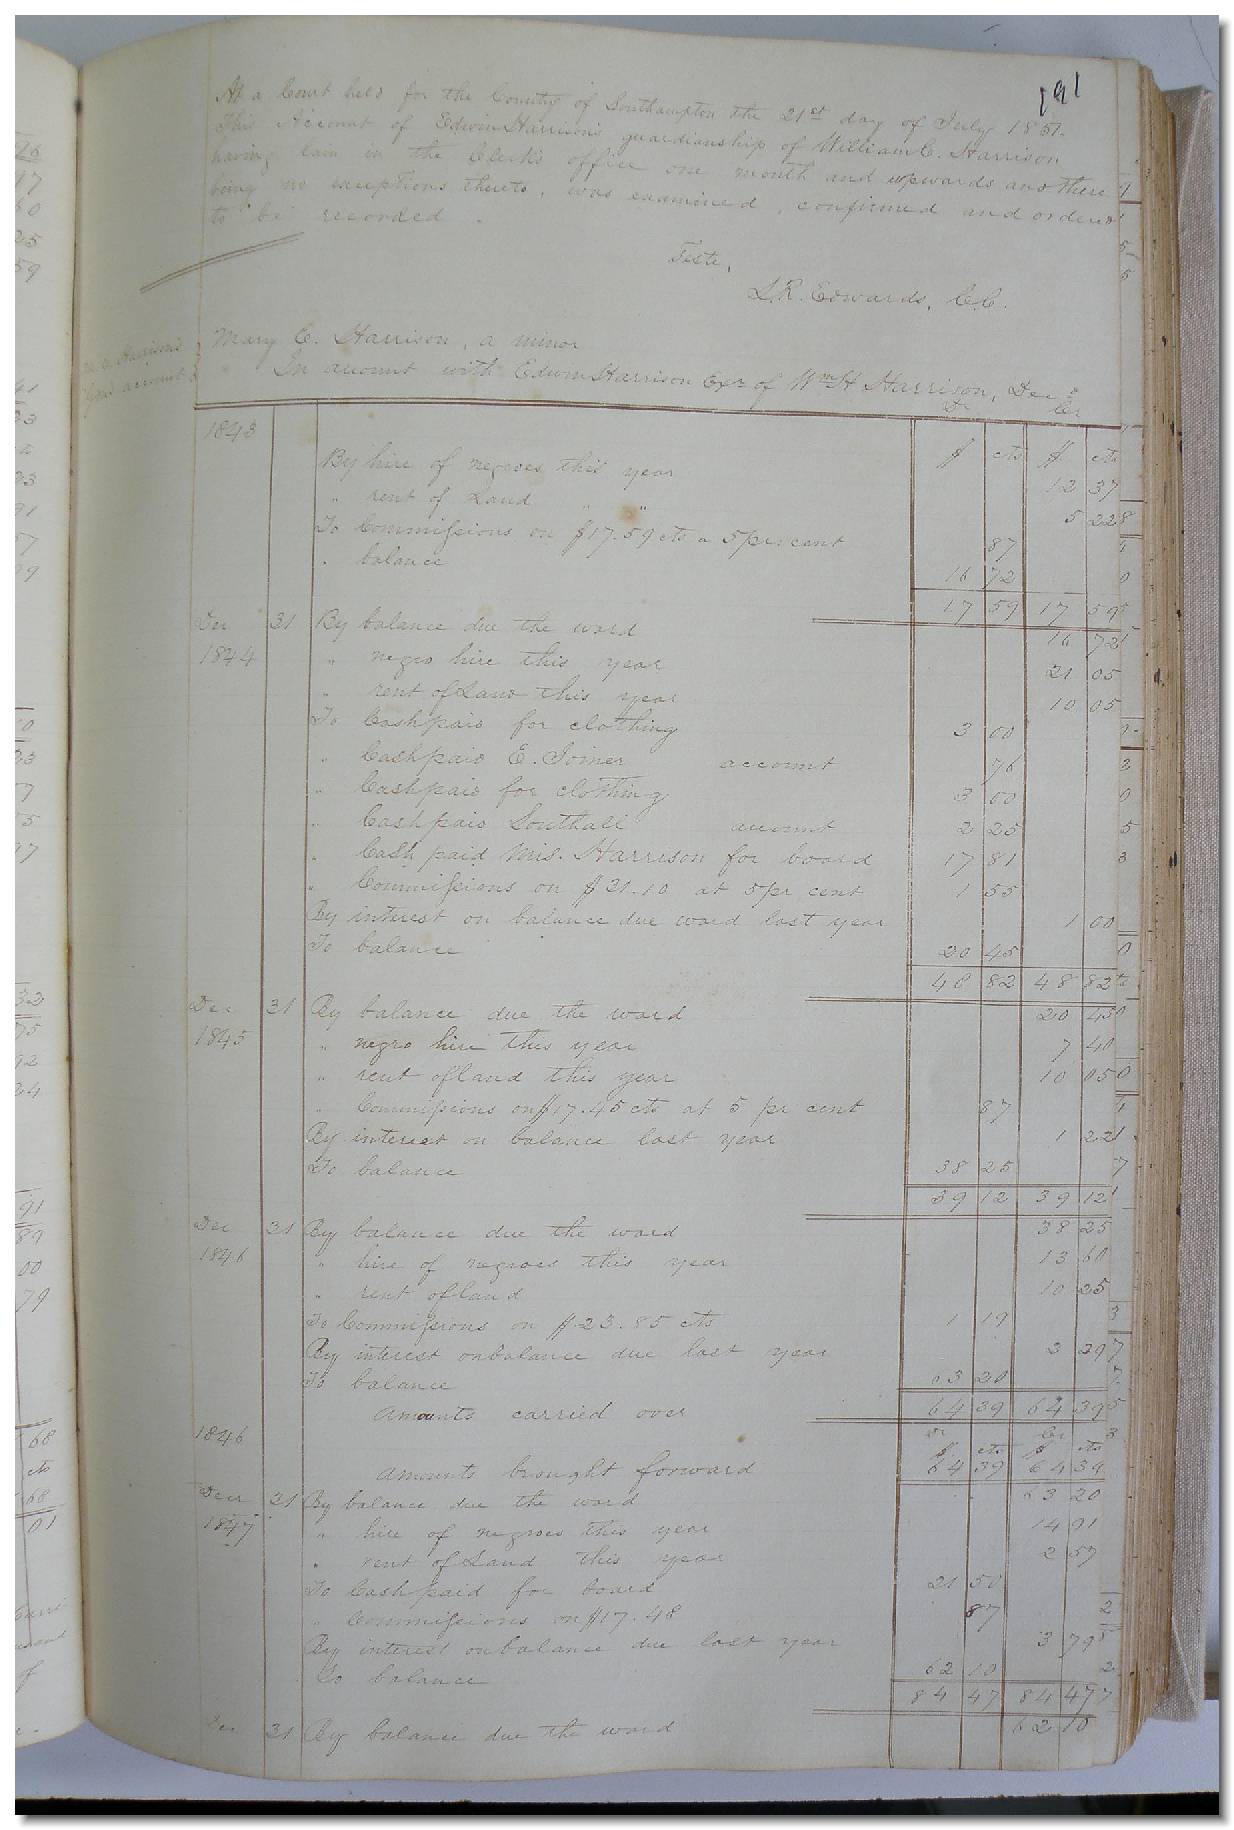 191
At a Court held for the County of Southampton the 21st day of July 1851.
This Account of Edwin Harrison's guardianship of William C. Harrison
having lain in the Clerk's office one month and upwards and there
being no exceptions thereto, was examined, confirmed and ordered
to be recorded.
Teste,
L.R. Edwards, C.C.
Harrison's
account
Mary C. Harrison, a minor
In account with Edwin Harrison Exr of Wm H Harrison, Decs
Dr Cr
1843 $ cts $ cts
By hire of negroes this year 12 37
" rent of Land " " 5 22
To Commissions on $17.59 cts a 5 per cent 87
" balance 16 72
17 59 17 59
Dec 31 By balance due the ward 16 72
1844 " negro hire this year 21 05
" rent of Land this year 10 05
To Cash paid for clothing 3 00
" Cash paid E. Joiner account 76
" Cash paid for clothing 3 00
" Cash paid Southall account 2 25
" Cash paid Mrs. Harrison for board 17 81
" Commissions on $31.10 at 5 pr cent 1 55
By interest on balance due ward last year 1 00
To balance 20 45
48 82 48 82
Dec 31 By balance due the ward 20 45
1845 " negro hire this year 7 40
" rent of land this year 10 05
" Commissions on $17.45 cts at 5 pr cent 87
By interest on balance last year 1 22
To balance 38 25
39 12 39 12
Dec 31 By balance due the ward 38 25
1846 " hire of negroes this year 13 60
" rent of land 10 25
To Commissions on $23.85 cts 1 19
By interest on balance due last year 2 29
To balance 63 20
Amounts carried over 64 39 64 39
1846 Dr Cr
$ cts $ cts
Amounts brought forward 64 39 64 39
Decr 31 By balance due the ward 63 20
1847 " hire of negroes this year 14 91
" rent of Land this year 2 57
To Cash paid for board 21 50
" Commissions on $17.48 87
By interest on balance due last year 3 79
To balance 62 10
84 47 84 47
Dec 31 By balance due the ward 62 10